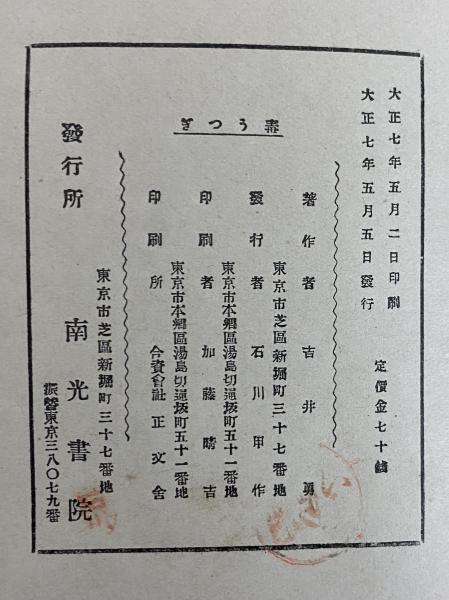 大正七年五月二日印刷
大正七年五月五日發行
定價金七十錢
毒うつぎ
著作者 吉井勇
東京市芝區新堀町三十七番地
發行者 石川甲作
東京市本鄕區湯島切通坂町五十一番地
印刷者 加藤晴吉
東京市本鄕區湯島切通坂町五十一番地
印刷所 合資會社正文舍
東京市芝區新堀町三十七番地
發行所 南光書院
振替東京三八〇七九番